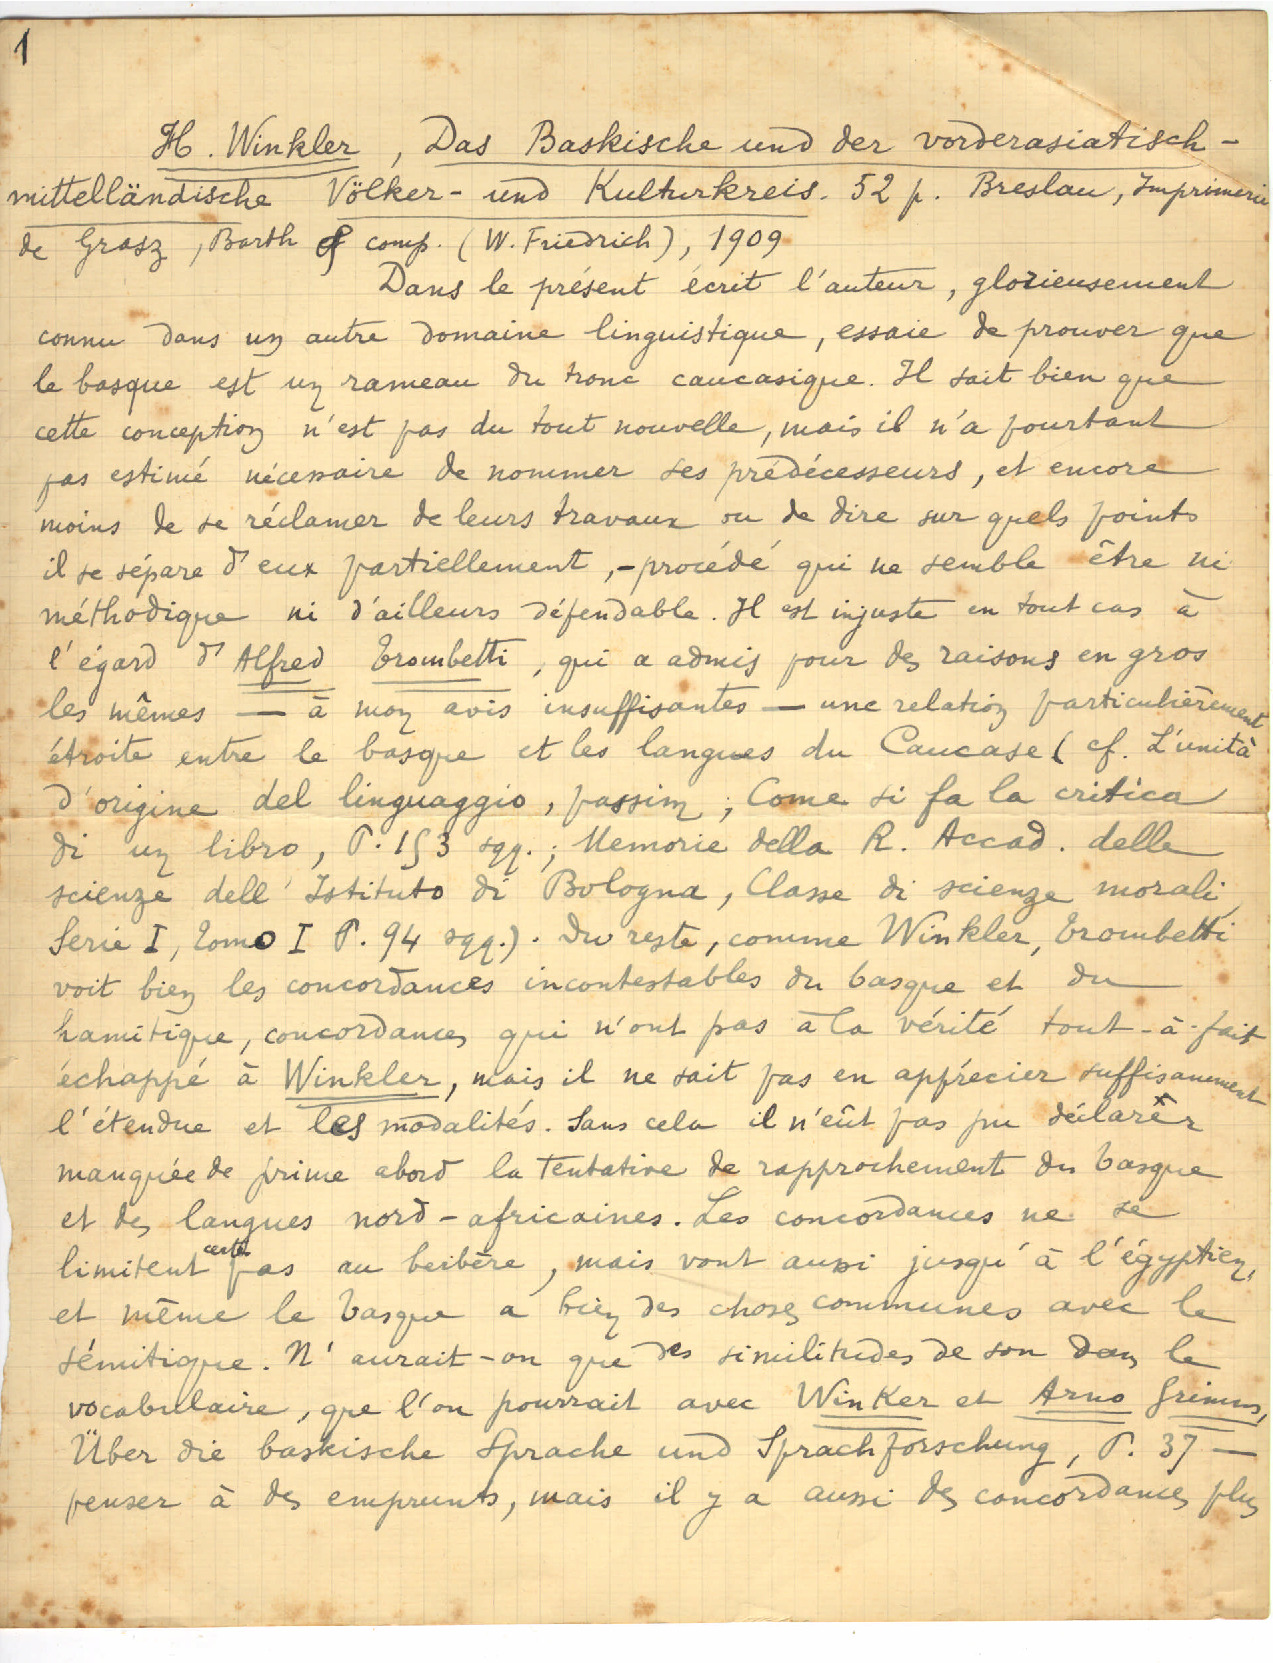 1
H. Winkler, Das Baskische und der vorderasiatisch-
mittelländische Völker- und Kulturkreis. 52 p. Breslau, Imprimerie
de Grasz, Barth & comp. (W. Friedrich), 1909
Dans le présent écrit l'auteur, glorieusement
connu dans un autre domaine linguistique, essaie de prouver que
le basque est un rameau du tronc caucasique. Il sait bien que
cette conception n'est pas du tout nouvelle, mais il n'a pourtant
pas estimé nécessaire de nommer ses prédécesseurs, et encore
moins de se réclamer de leurs travaux ou de dire sur quels points
il se sépare d'eux partiellement, - procédé qui ne semble être ni
méthodique ni d'ailleurs défendable. Il est injuste en tout cas à
l'égard d'Alfred Trombetti, qui a admis pour des raisons en gros
les mêmes — à mon avis insuffisantes — une relation particulièrement
étroite entre le basque et les langues du Caucase (cf. L'unità
d'origine del linguaggio, passim; Come si fa la critica
di un libro, P. 153 sqq.; Memorie della R. Accad. delle
scienze dell' Istituto di Bologna, Classe di scienze morali,
Serie I, Tomo I P. 94 sqq.). Du reste, comme Winkler, Trombetti
voit bien les concordances incontestables du basque et du
hamitique, concordances qui n'ont pas à la vérité tout-à-fait
échappé à Winkler, mais il ne sait pas en apprécier suffisamment
l'étendue et les modalités. Sans cela il n'eût pas pu déclarer
manquée de prime abord la tentative de rapprochement du basque
et des langues nord-africaines. Les concordances ne se
limitent certes pas au berbère, mais vont aussi jusqu'à l'égyptien,
et même le basque a bien des choses communes avec le
sémitique. N'aurait-on que des similitudes de son dans le
vocabulaire, que l'on pourrait avec Winker et Arno Grimm,
Über die baskische Sprache und Sprachforschung, P. 37 —
penser à des emprunts, mais il y a aussi des concordances plus